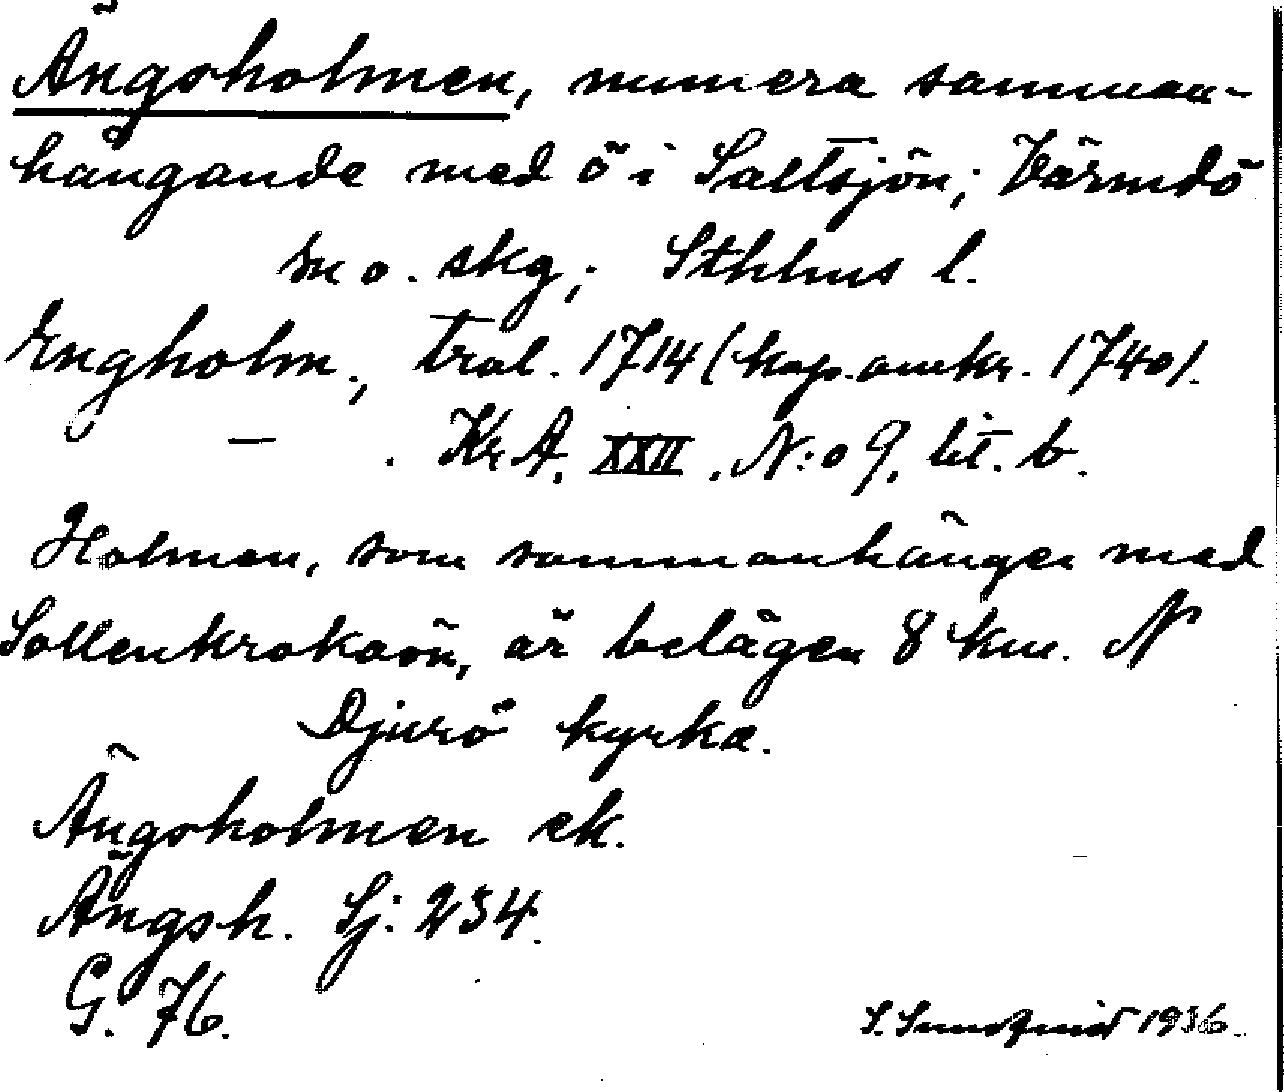 Ängsholmen, numera samman-
hängande med ö i Saltsjön; Värmdö
sn o. skg; Sthlms l.
Engholm, tral. 1714 (kop. omkr. 1740).
— . Kr A. XXII. N:o 9. lit. b.
Holmen, som sammanhänger med
Sollenkrokaön, är belägen 8 km. N
Djurö kyrka.
Ängsholmen ek.
Ängsh. Sj: 234.
G. 76.
S. Sundquist 1936.